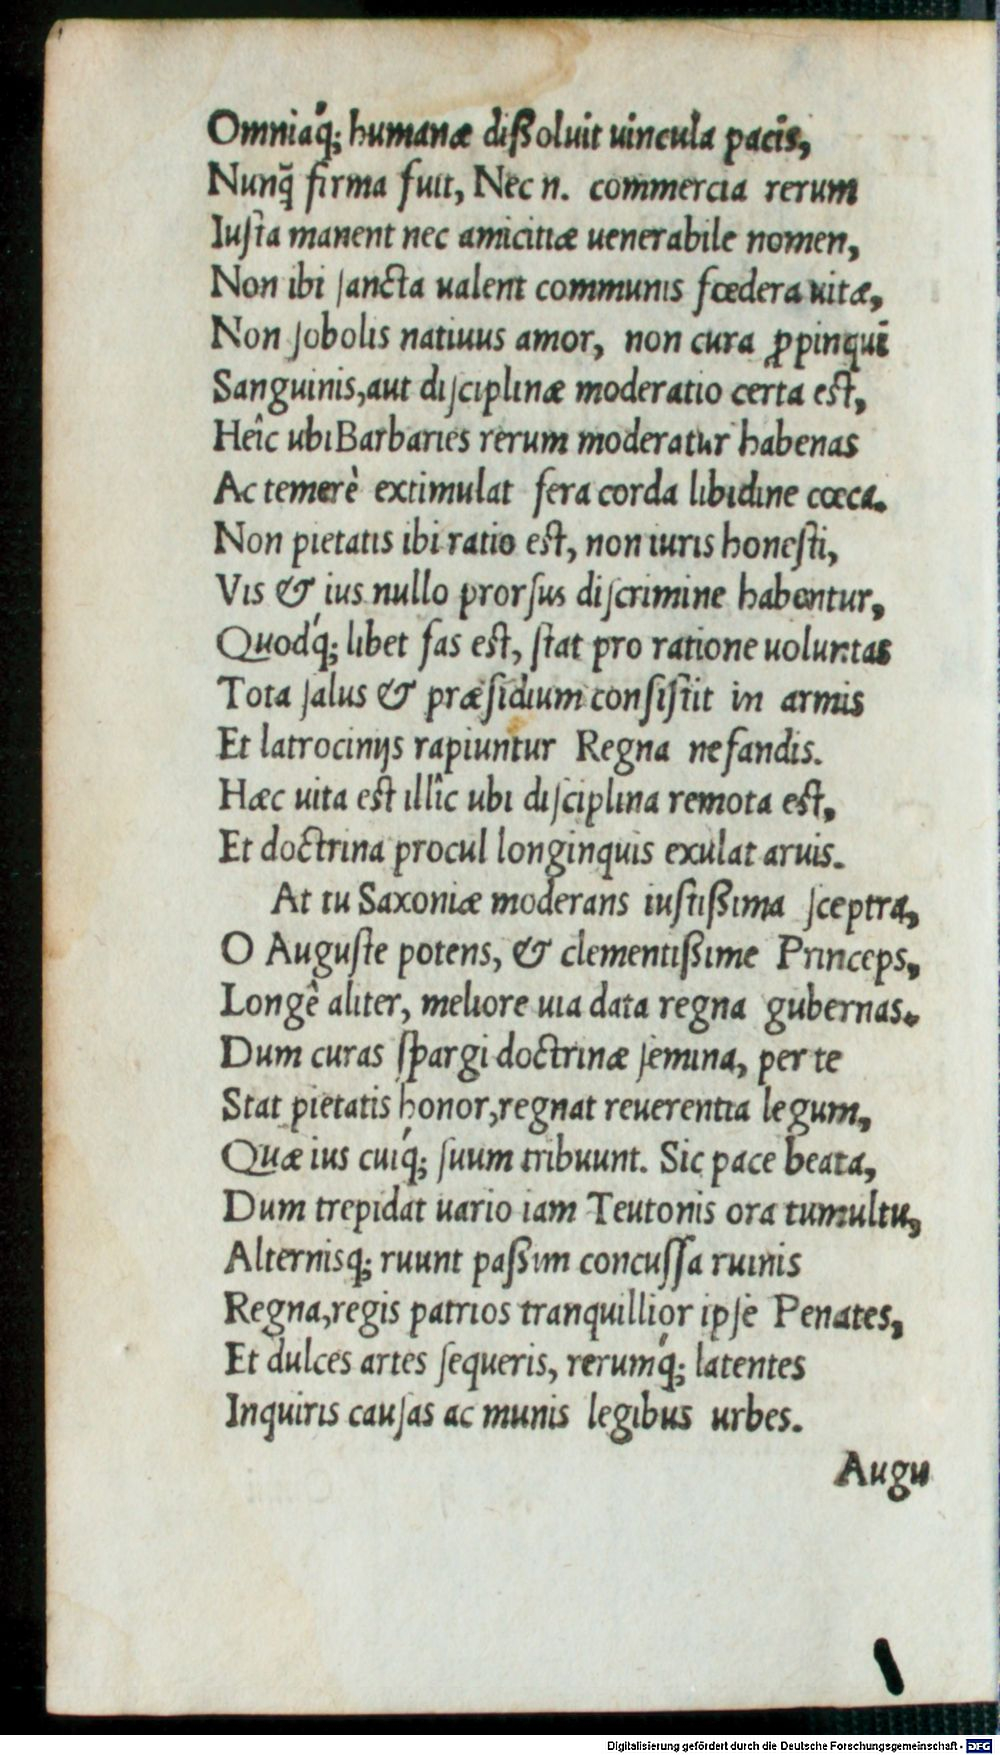 Omniaq́; humanæ dißoluit uincula pacis,
Nunq̃ firma fuit, Nec n. commercia rerum
Iuſta manent nec amicitiæ uenerabile nomen,
Non ibi ſancta ualent communis fœdera uitæ,
Non ſobolis natiuus amor, non cura ꝓpinqui
Sanguinis,aut diſciplinæ moderatio certa eſt,
Heîc ubi Barbaries rerum moderatur habenas
Ac temerè extimulat fera corda libidine cœca.
Non pietatis ibi ratio eſt, non iuris honeſti,
Vis & ius nullo prorſus diſcrimine habentur,
Quodq́; libet fas eſt, ſtat pro ratione uoluntas
Tota ſalus & præſidium conſiſtit in armis
Et latrocinijs rapiuntur Regna nefandis.
Hæc uita eſt illîc ubi diſciplina remota eſt,
Et doctrina procul longinquis exulat aruis.
At tu Saxoniæ moderans iuſtißima ſceptra,
O Auguſte potens, & clementißime Princeps,
Longê aliter, meliore uia data regna gubernas.
Dum curas ſpargi doctrinæ ſemina, per te
Stat pietatis honor,regnat reuerentia legum,
Quæ ius cuiq́; ſuum tribuunt. Sic pace beata,
Dum trepidat uario iam Teutonis ora tumultu,
Alternisq; ruunt paßim concuſſa ruinis
Regna,regis patrios tranquillior ipſe Penates,
Et dulces artes ſequeris, rerumq́; latentes
Inquiris cauſas ac munis legibus urbes.
Augu
Digitalisierung gefördert durch die Deutsche Forschungsgemeinschaft - DFG